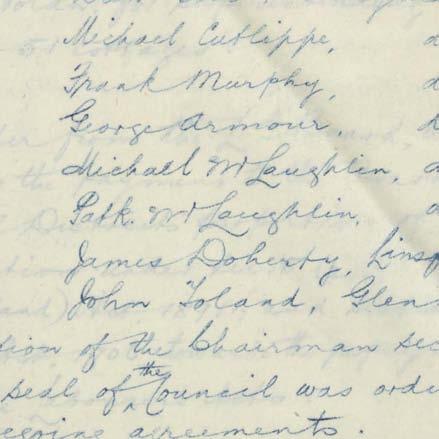 Michael Cutlippe,
Frank Murphy,
George Armour,
Michael McLaughlin,
Patk. McLaughlin,
James Doherty, Lins
John Toland, Glen
tion of the Chairman sec
seal of the Council was orde
agreements.